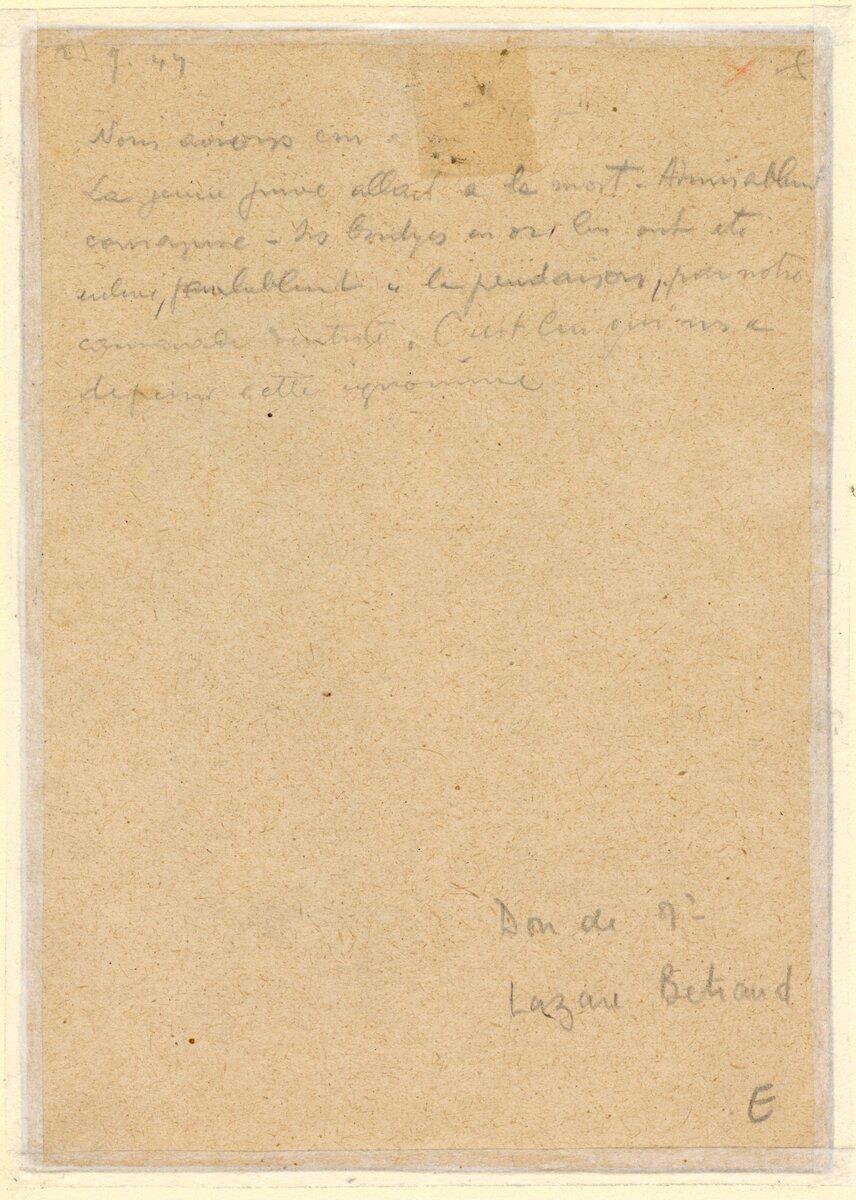 9. 44
Nous avions
La jeune juive allait à la mort. Admirablement
courageuse - Ses bridges en or, lui ont été
enlevé, préalablement à la pendaison, par notre
camarade dentiste. C'est lui qui m'a
dépeint cette ignominie
Don de Mr
Lazare Betrand
E